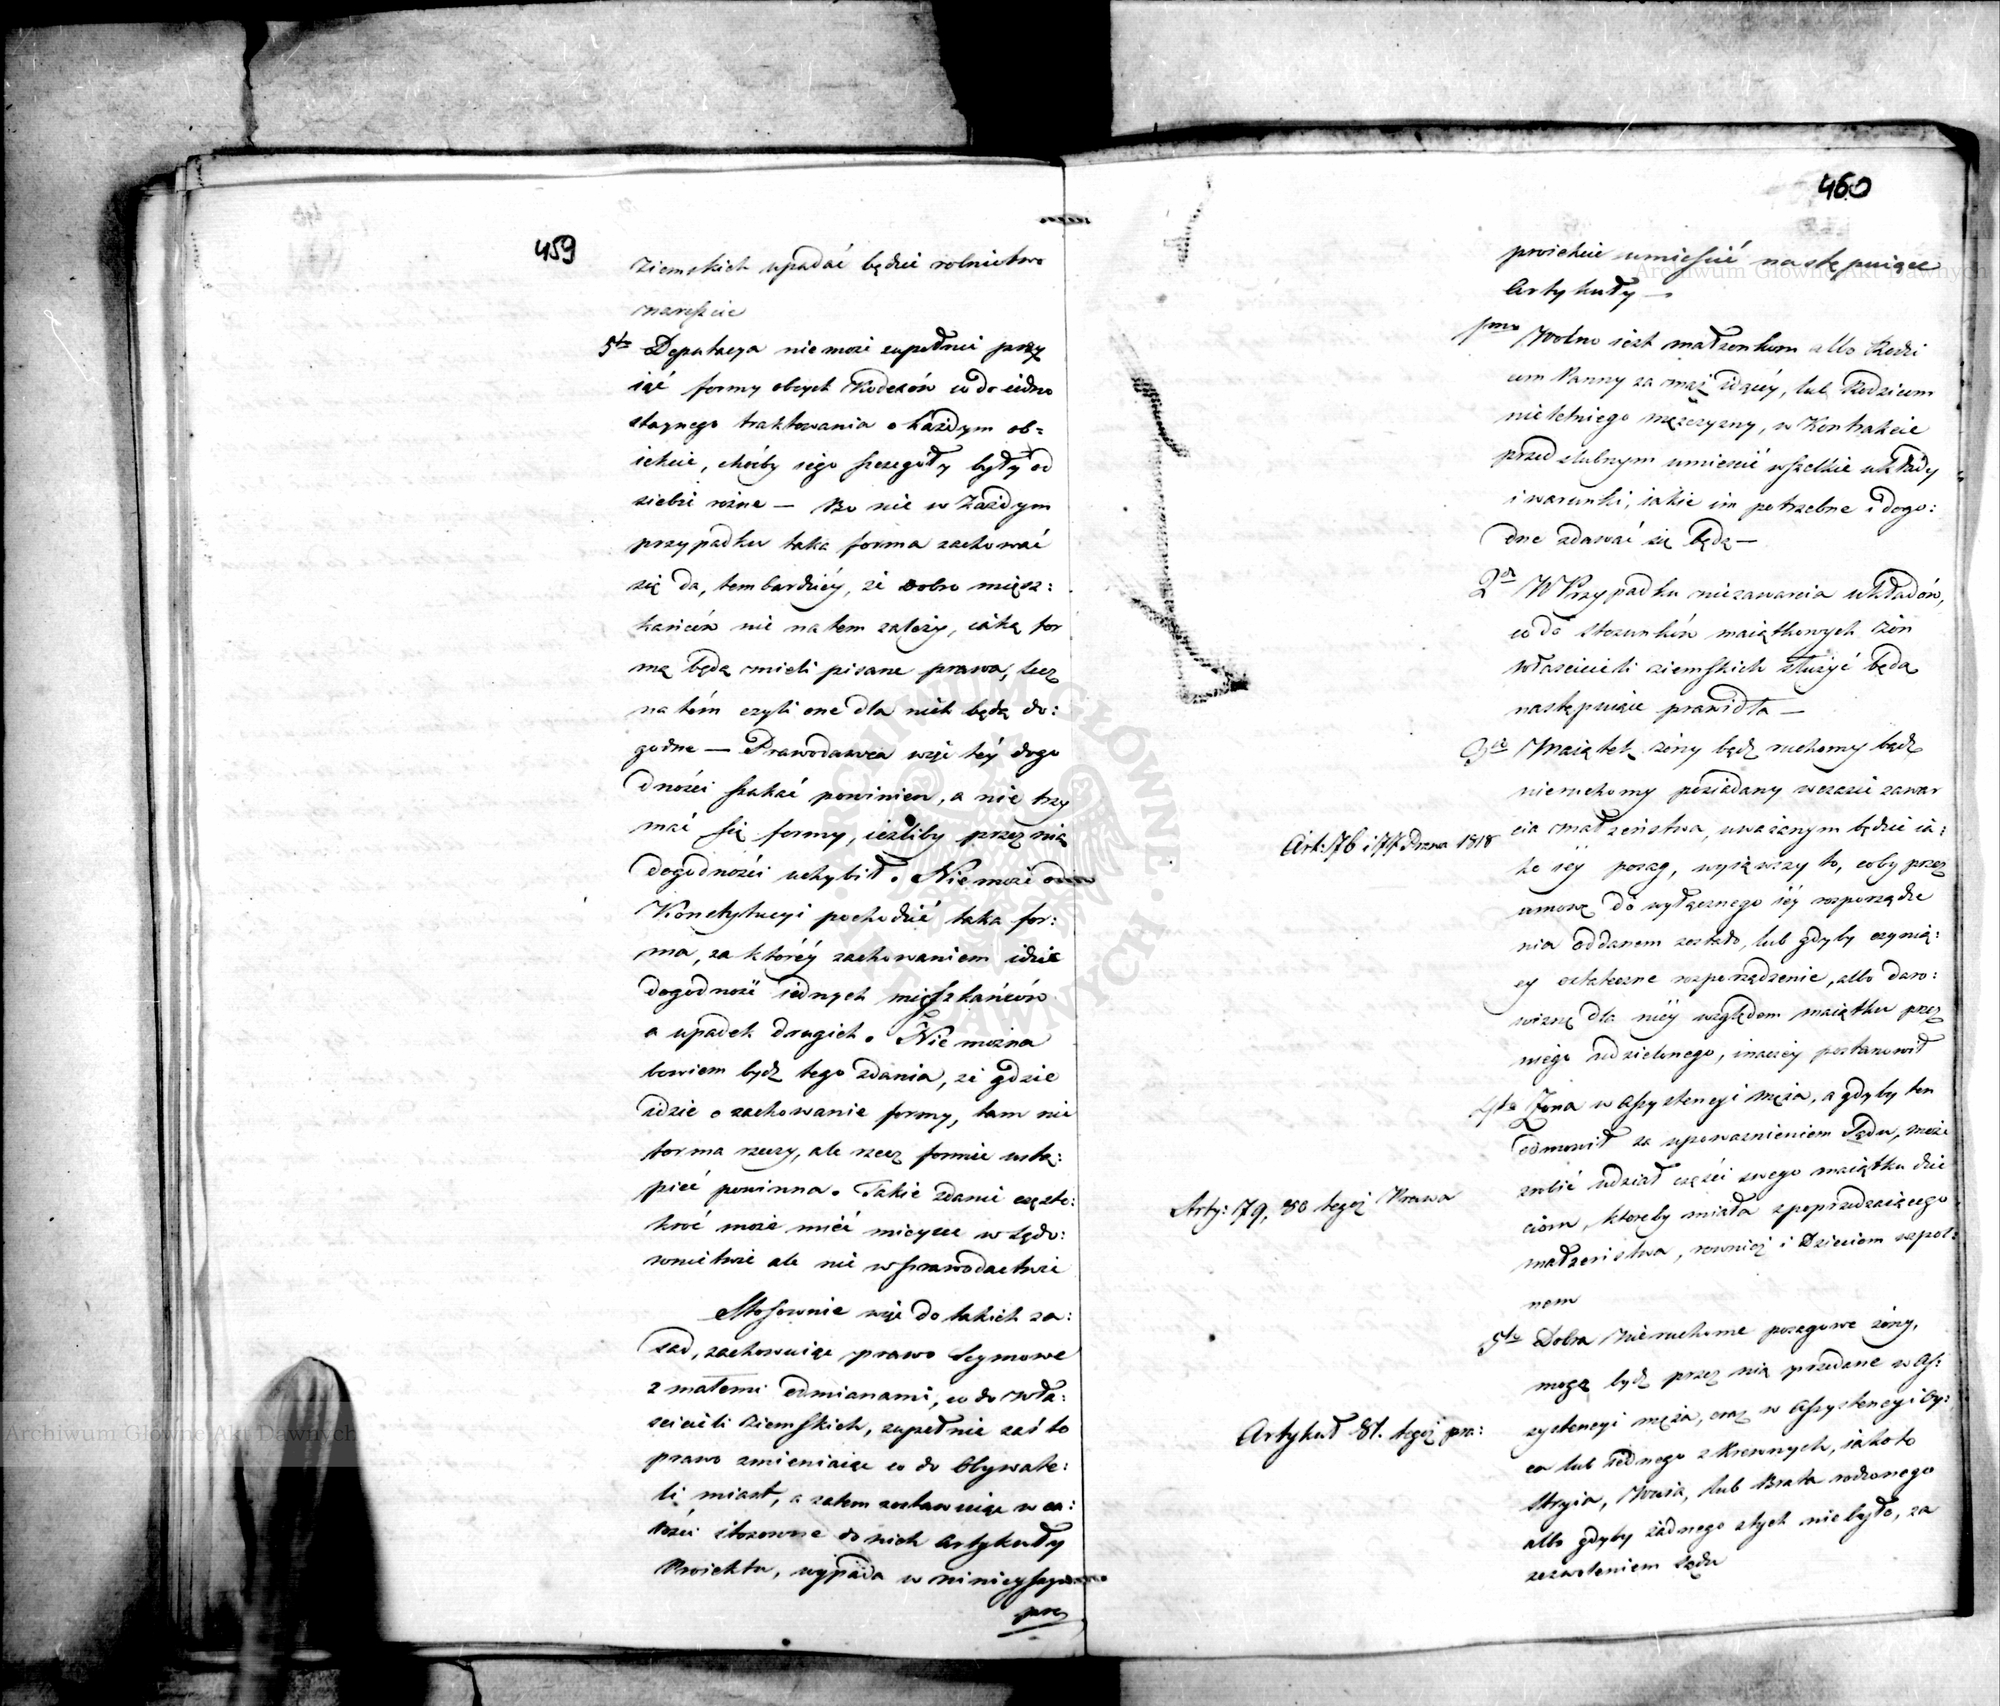 459
ziemskich upadać będzie rolnictwo
nareszcie
5to Deputacya nie może zupełnie przy
iąć formy obcych Kodexów co do iedno
staynego traktowania o każdym ob=
iekcie, choćby iego szczegóły były od
siebie rożne — Bo nie w każdym
przypadku taka forma zachować
się da, tembardziéy, że dobro miesz:
kańców nie na tem zależy, iaką for
mą będą mieli pisane prawa, lecz
na tém czyli one dla nich będą do:
godne — Prawodawca więc téy dogo
dności szukać powinien, a nie trzy
mać się formy, ieżliby przez nią
dogodności uchybił. Nie może
Konstytucyi pochodzić taka for:
ma, za któréy zachowaniem idzie
dogodność iednych mieszkańców
a upadek drugich. Nie można
bowiem bydź tego zdania, że gdzie
idzie o zachowanie formy, tam nie
forma rzeczy, ale rzecz formie ustą:
pić powinna. Takie zdanie często:
kroć może mieć mieysce w sądo:
wnictwie ale nie w prawodactwie
Stosownie więc do takich za:
sad, zachowuiąc prawo Seymowe
z małemi odmianami, co do Wła:
ścicieli Ziemskich, zupełnie zaś to
prawo zmieniaiąc co do Obywate:
li miast, a zatem zostawuiąc w ca:
łości stosowne do nich Artykuły
Proiektu, wypada w ninieyszym
pro
460
proiekcie umieścić następuiące
Artykuły —
pmo Wolno iest małżonkom albo Rodzi
com Panny za mąż idącéy, lub Rodzicom
nieletniego męszczyzny, w Kontrakcie
przedślubnym umieścić wszelkie układy
i warunki, iakie im potrzebne i dogo:
dne zdawać się będą —
2do W Przypadku niezawarcia układów,
co do stosunków maiątkowych żon
właścicieli ziemskich służyć będą
następuiące prawidła —
3cio Maiątek żony bądź ruchomy bądź
nieruchomy posiadany w czasie zawar
cia małżeństwa, uważanym będzie ia:
ko iéy posag, wyiąwszy to, coby przez
umowę do wyłącznego iéy rozporządze
nia oddanem zostało, lub gdyby czynią:
cy ostateczne rozporządzenie, albo daro:
wiznę dla niéy względem maiątku przez
niego udzielonego, inaczéy postanowił
Art: 76 i 77 Prawa 1818
4to Żona w Assystencyi męża, a gdyby ten
odmowił za upoważnieniem Sądu, może
zrobić udział części swego maiątku dzie
ciom, któreby miała z poprzedzaiącego
małżeństwa, rownież i Dzieciom wspol:
nem
Arty: 79, 80 tegoż Prawa
5to Dobra Nieruchome posagowe żony,
mogą bydź przez nią przedane w As:
systencyi męża, oraz w Assystencyi Oy:
ca lub iednego z Krewnych, iako to
Stryia, Wuia, lub Brata rodzonego
albo gdyby żadnego z tych niebyło, za
zezwoleniem Sądu
Artykuł 81. tegoż pra:
Archiwum Główne Akt Dawnych
Archiwum Główne Akt Dawnych
ARCHIWUM GŁÓWNE AKT DAWNYCH